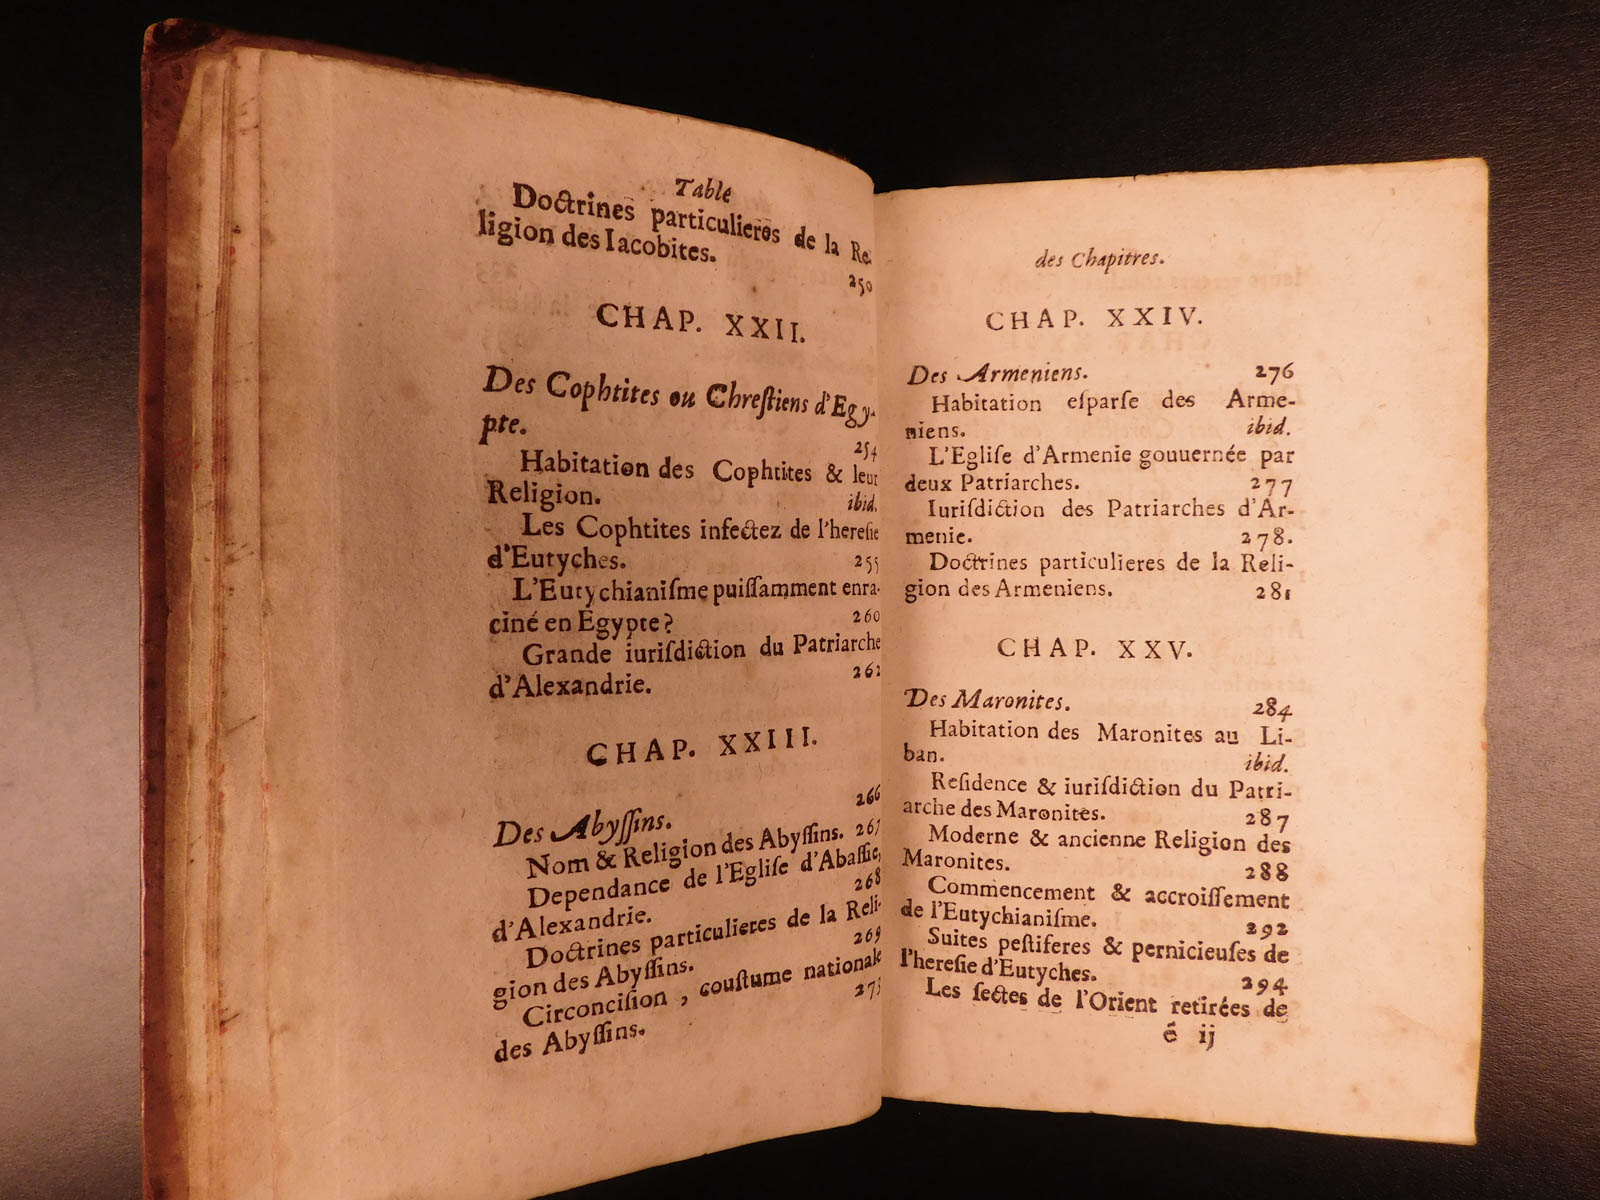 Table
Doctrines particulieres de la Re-
ligion des Iacobites.
250
CHAP. XXII.
Des Cophtites ou Chreſtiens d'Egy-
pte.
254
Habitation des Cophtites & leur
Religion.
ibid.
Les Cophtites infectez de l'hereſie
d'Eutyches.
255
L'Eutychianiſme puiſſamment enra-
ciné en Egypte?
260
Grande iuriſdiction du Patriarche
d'Alexandrie.
262
CHAP. XXIII.
Des Abyſſins.
266
Nom & Religion des Abyſſins. 267
Dependance de l'Egliſe d'Abaſſie,
d'Alexandrie.
268
Doctrines particulieres de la Reli-
gion des Abyſſins.
269
Circonciſion, couſtume nationale
des Abyſſins.
des Chapitres.
CHAP. XXIV.
Des Armeniens. 276
Habitation eſparſe des Arme-
niens. ibid.
L'Egliſe d'Armenie gouuernée par
deux Patriarches. 277
Iuriſdiction des Patriarches d'Ar-
menie. 278.
Doctrines particulieres de la Reli-
gion des Armeniens. 281
CHAP. XXV.
Des Maronites. 284
Habitation des Maronites au Li-
ban. ibid.
Reſidence & iuriſdiction du Patri-
arche des Maronites. 287
Moderne & ancienne Religion des
Maronites. 288
Commencement & accroiſſement
de l'Eutychianiſme. 292
Suites peſtiferes & pernicieuſes de
l'hereſie d'Eutyches. 294
Les ſectes de l'Orient retirées de
é ij